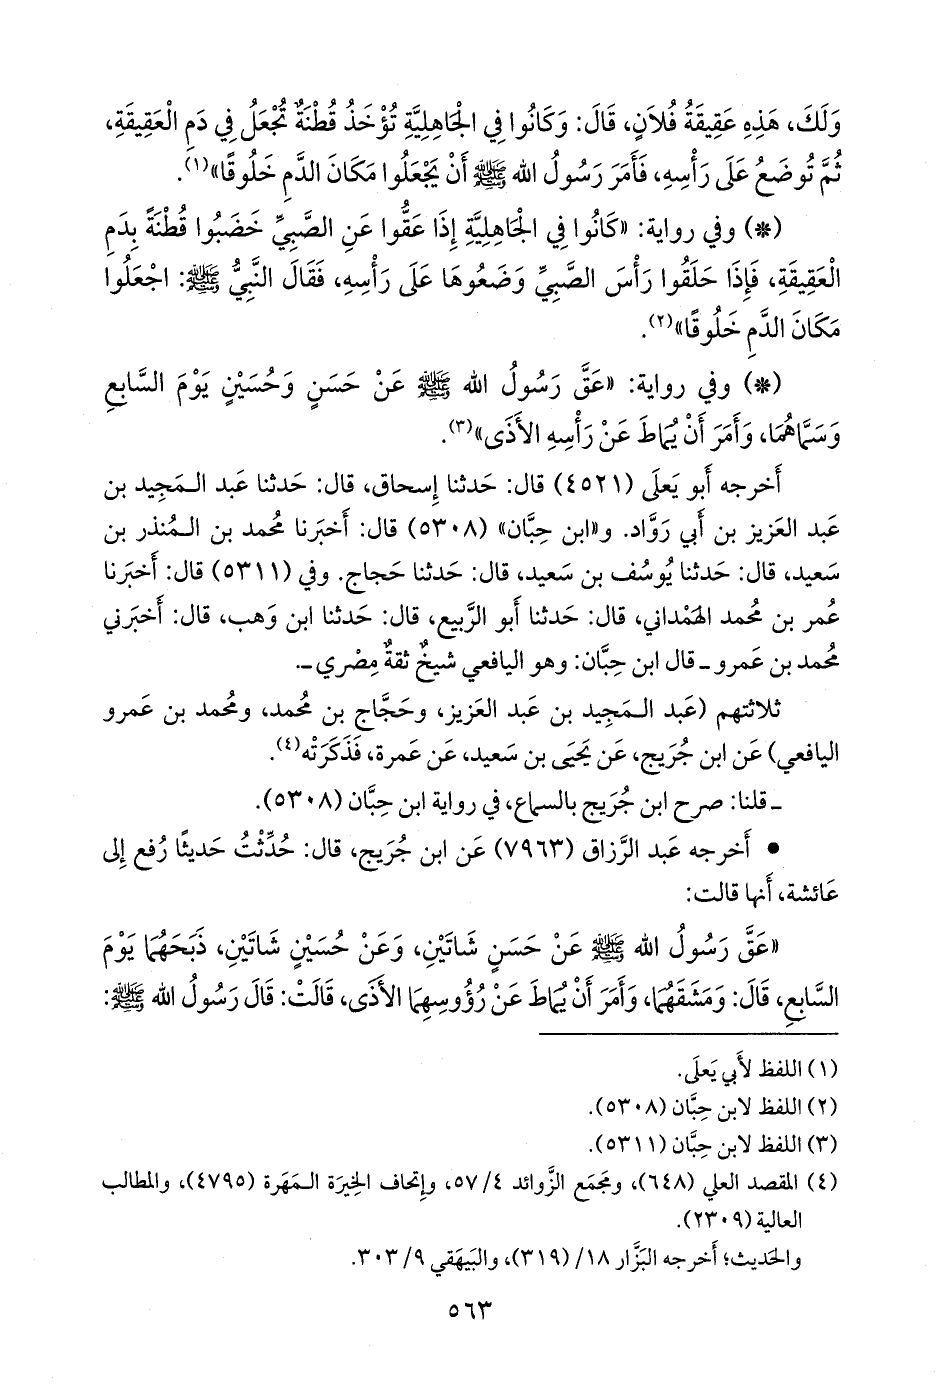 وَلَكَ، هَذِهِ عَقِيقَةُ فُلَانٍ، قَالَ: وَكَانُوا فِي الْجَاهِلِيَّةِ تُؤْخَذُ قُطْنَةٌ تُجْعَلُ فِي دَمِ الْعَقِيقَةِ،
ثُمَّ تُوضَعُ عَلَى رَأْسِهِ، فَأَمَرَ رَسُولُ الله ﷺ أَنْ يَجْعَلُوا مَكَانَ الدَّمِ خَلُوقًا»(١).
(*) وفي رواية: «كَانُوا فِي الْجَاهِلِيَّةِ إِذَا عَقُّوا عَنِ الصَّبِيِّ خَضَبُوا قُطْنَةً بِدَمِ
الْعَقِيقَةِ، فَإِذَا حَلَقُوا رَأْسَ الصَّبِيِّ وَضَعُوهَا عَلَى رَأْسِهِ، فَقَالَ النَّبِيُّ ﷺ: اجْعَلُوا
مَكَانَ الدَّمِ خَلُوقًا»(٢).
(*) وفي رواية: «عَقَّ رَسُولُ الله ﷺ عَنْ حَسَنٍ وَحُسَيْنٍ يَوْمَ السَّابِعِ
وَسَمَّاهُمَا، وَأَمَرَ أَنْ يُمَاطَ عَنْ رَأْسِهِ الأَذَى»(٣).
أَخرجه أَبو يَعلَى (٤٥٢١) قال: حَدثنا إِسحاق، قال: حَدثنا عَبد الـمَجِيد بن
عَبد العَزيز بن أَبي رَوَّاد. و«ابن حِبَّان» (٥٣٠٨) قال: أَخبَرنا مُحمد بن الـمُنذر بن
سَعيد، قال: حَدثنا يُوسُف بن سَعيد، قال: حَدثنا حَجاج. وفي (٥٣١١) قال: أَخبَرنا
عُمر بن مُحمد الهَمْداني، قال: حَدثنا أَبو الرَّبيع، قال: حَدثنا ابن وَهب، قال: أَخبَرني
مُحمد بن عَمرو ـ قال ابن حِبَّان: وهو اليافعي شيخٌ ثقةٌ مِصْري ـ.
ثلاثتهم (عَبد الـمَجِيد بن عَبد العَزيز، وحَجَّاج بن مُحمد، ومُحمد بن عَمرو
اليافعي) عَن ابن جُرَيج، عَن يَحيَى بن سَعيد، عَن عَمرة، فَذَكَرَتْه(٤).
ـ قلنا: صرح ابن جُرَيج بالسماع، في رواية ابن حِبَّان (٥٣٠٨).
• أَخرجه عَبد الرَّزاق (٧٩٦٣) عَن ابن جُرَيج، قال: حُدِّثْتُ حَديثًا رُفع إِلى
عَائشة، أَنها قالت:
«عَقَّ رَسُولُ الله ﷺ عَنْ حَسَنٍ شَاتَيْنِ، وَعَنْ حُسَيْنٍ شَاتَيْنِ، ذَبَحَهُمَا يَوْمَ
السَّابِعِ، قَالَ: وَمَشَقَهُمَا، وَأَمَرَ أَنْ يُمَاطَ عَنْ رُؤُوسِهِمَا الأَذَى، قَالَتْ: قَالَ رَسُولُ الله ﷺ:
(١) اللفظ لأَبي يَعلَى.
(٢) اللفظ لابن حِبَّان (٥٣٠٨).
(٣) اللفظ لابن حِبَّان (٥٣١١).
(٤) المقصد العلي (٦٤٨)، ومَجمَع الزَّوائد ٤/ ٥٧، وإِتحاف الخِيرَة الـمَهَرة (٤٧٩٥)، والمطالب
العالية (٢٣٠٩).
والحَديث؛ أَخرجه البَزَّار ١٨/ (٣١٩)، والبَيهَقي ٩/ ٣٠٣.
٥٦٣